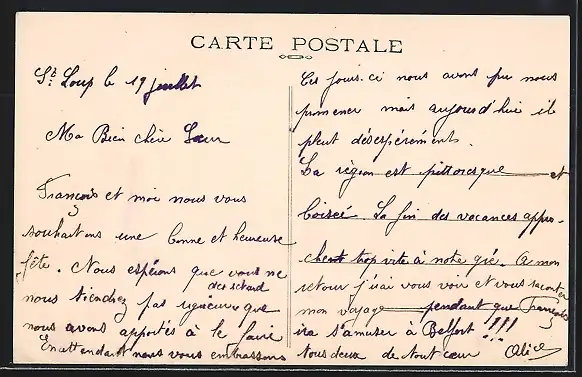 CARTE POSTALE
St Loup le 19 juillet
Ma Bien chère Sœur
François et moi nous vous
souhaitons une bonne et heureuse
fête. Nous espérons que vous ne
nous tiendrez pas rigueur que
du retard
nous avons apportés à le faire
En attendant nous vous embrassons
Ces jours-ci nous avons pu nous
promener mais aujourd'hui il
pleut désespérément.
La région est pittoresque et
boisée. La fin des vacances appro-
chent trop vite à notre gré. A mon
retour j'irai vous voir et vous raconter
mon voyage pendant que François
ira s'amuser à Belfort !!!
tous deux de tout cœur Alice